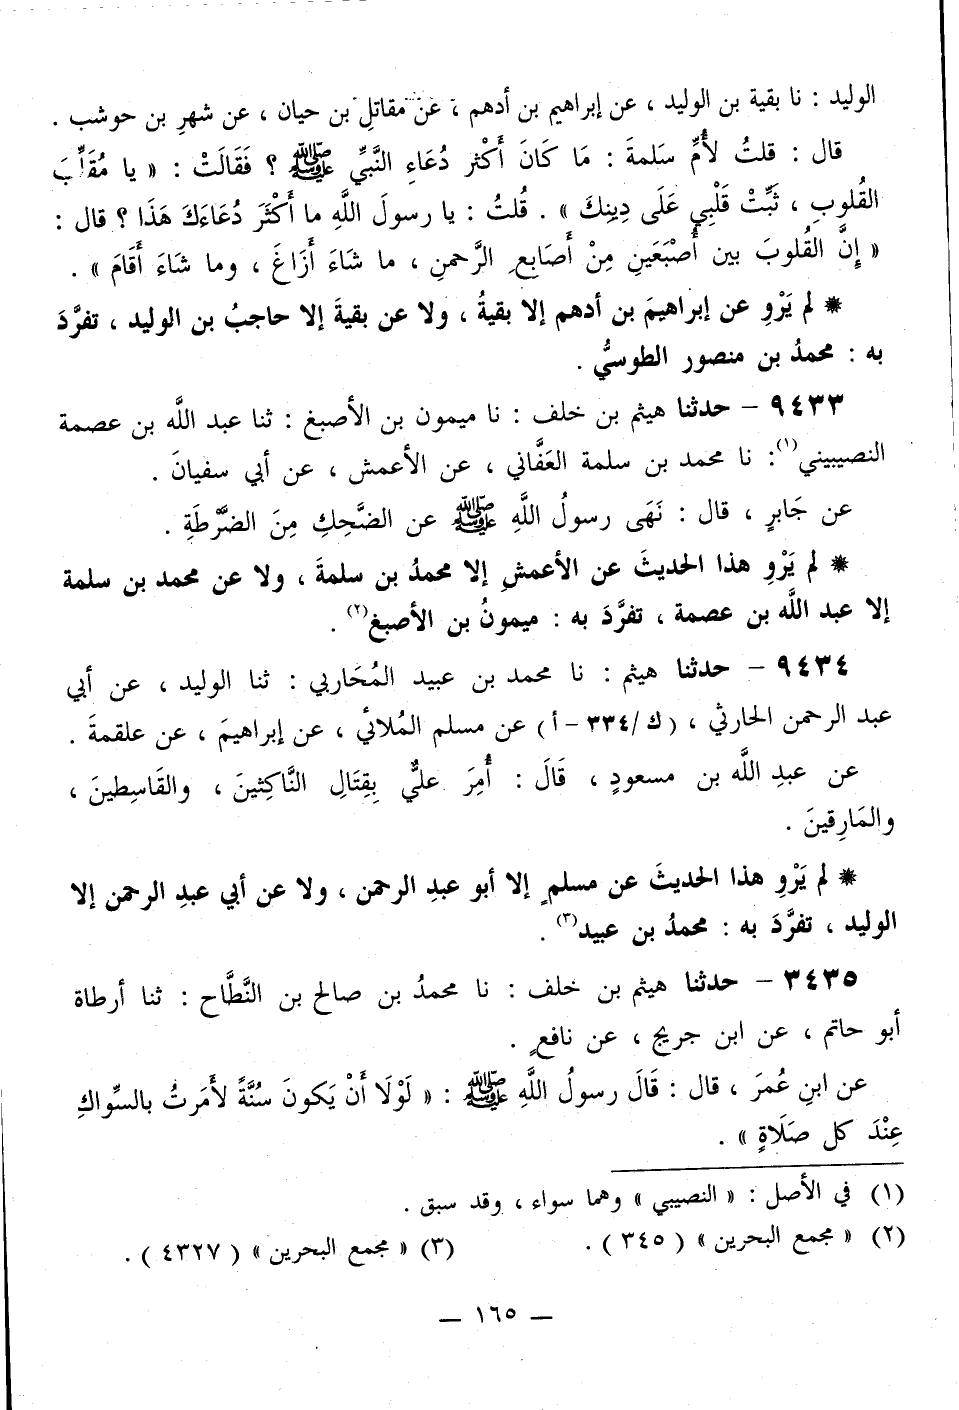 الوليد : نا بقية بن الوليد ، عن إبراهيم بن أدهم ، عن مقاتلِ بن حيان ، عن شهرِ بن حوشب .
قال : قلتُ لأُمِّ سَلمةَ : مَا كَانَ أَكْثر دُعَاءِ النَّبِّي ﷺ ؟ فَقَالَتْ : « يا مُقَلِّبَ
القُلوبِ ، ثَبِّتْ قَلْبِي عَلَى دِينِكَ » . قُلتُ : يا رسولَ اللَّهِ ما أَكْثَرَ دُعَاءَكَ هَذَا ؟ قال :
« إِنَّ القُلوبَ بين أُصْبَعَينِ مِنْ أَصَابِعِ الرَّحمنِ ، ما شَاءَ أَزَاغَ ، وما شَاءَ أَقَامَ » .
* لم يَرْوِ عن إبراهيمَ بن أدهم إلا بقيةُ ، ولا عن بقيةَ إلا حاجبُ بن الوليد ، تفرَّدَ
به : محمدُ بن منصور الطوسيُّ .
٩٤٣٣ – حدثنا هيثم بن خلف : نا ميمون بن الأصبغ : ثنا عبد اللَّه بن عصمة
النصيبيني(١): نا محمد بن سلمة العَفَّاني ، عن الأعمش ، عن أبي سفيانَ .
عن جَابرٍ ، قال : نَهَى رسولُ اللَّهِ ﷺ عن الضَّحِكِ مِنَ الضَّرْطَةِ .
* لم يَرْوِ هذا الحديثَ عن الأعمشِ إلا محمدُ بن سلمةَ ، ولا عن محمد بن سلمة
إلا عبد اللَّه بن عصمة ، تفرَّدَ به : ميمونُ بن الأصبغ(٢) .
٩٤٣٤ – حدثنا هيثم : نا محمد بن عبيد المُحَاربي : ثنا الوليد ، عن أبي
عبد الرحمن الحارثي ، ( ك /٣٣٤ – أ ) عن مسلم المُلائي ، عن إبراهيمَ ، عن علقمةَ .
عن عبدِ اللَّه بن مسعودٍ ، قَالَ : أُمِرَ عليٌّ بِقِتَالِ النَّاكثينَ ، والقَاسِطينَ ،
والمَارِقينَ .
* لم يَرْوِ هذا الحديثَ عن مسلمٍ إلا أبو عبدِ الرحمن ، ولا عن أبي عبدِ الرحمن إلا
الوليد ، تفرَّدَ به : محمدُ بن عبيد(٣) .
٣٤٣٥ – حدثنا هيثم بن خلف : نا محمدُ بن صالح بن النَّطَّاح : ثنا أرطاة
أبو حاتم ، عن ابن جريج ، عن نافعٍ .
عن ابنِ عُمرَ ، قال : قَالَ رسولُ اللَّهِ ﷺ : « لَوْلَا أَنْ يَكونَ سُنَّةً لأَمَرتُ بالسِّواكِ
عِنْدَ كل صَلَاةٍ » .
(١) في الأصل : « النصيبي » وهما سواء ، وقد سبق .
(٢) « مجمع البحرين » ( ٣٤٥ ) . (٣) « مجمع البحرين » ( ٤٣٢٧ ) .
— ١٦٥ —